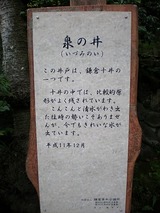 泉の井
(いづみのい)
この井戸は、鎌倉十井の
一つです。
十井の中では、比較的原
形がよく残されています。
こんこんと清水がわき出
た往時の勢いこそありませ
んが、今でもきれいな水が
出ています。
平成11年12月